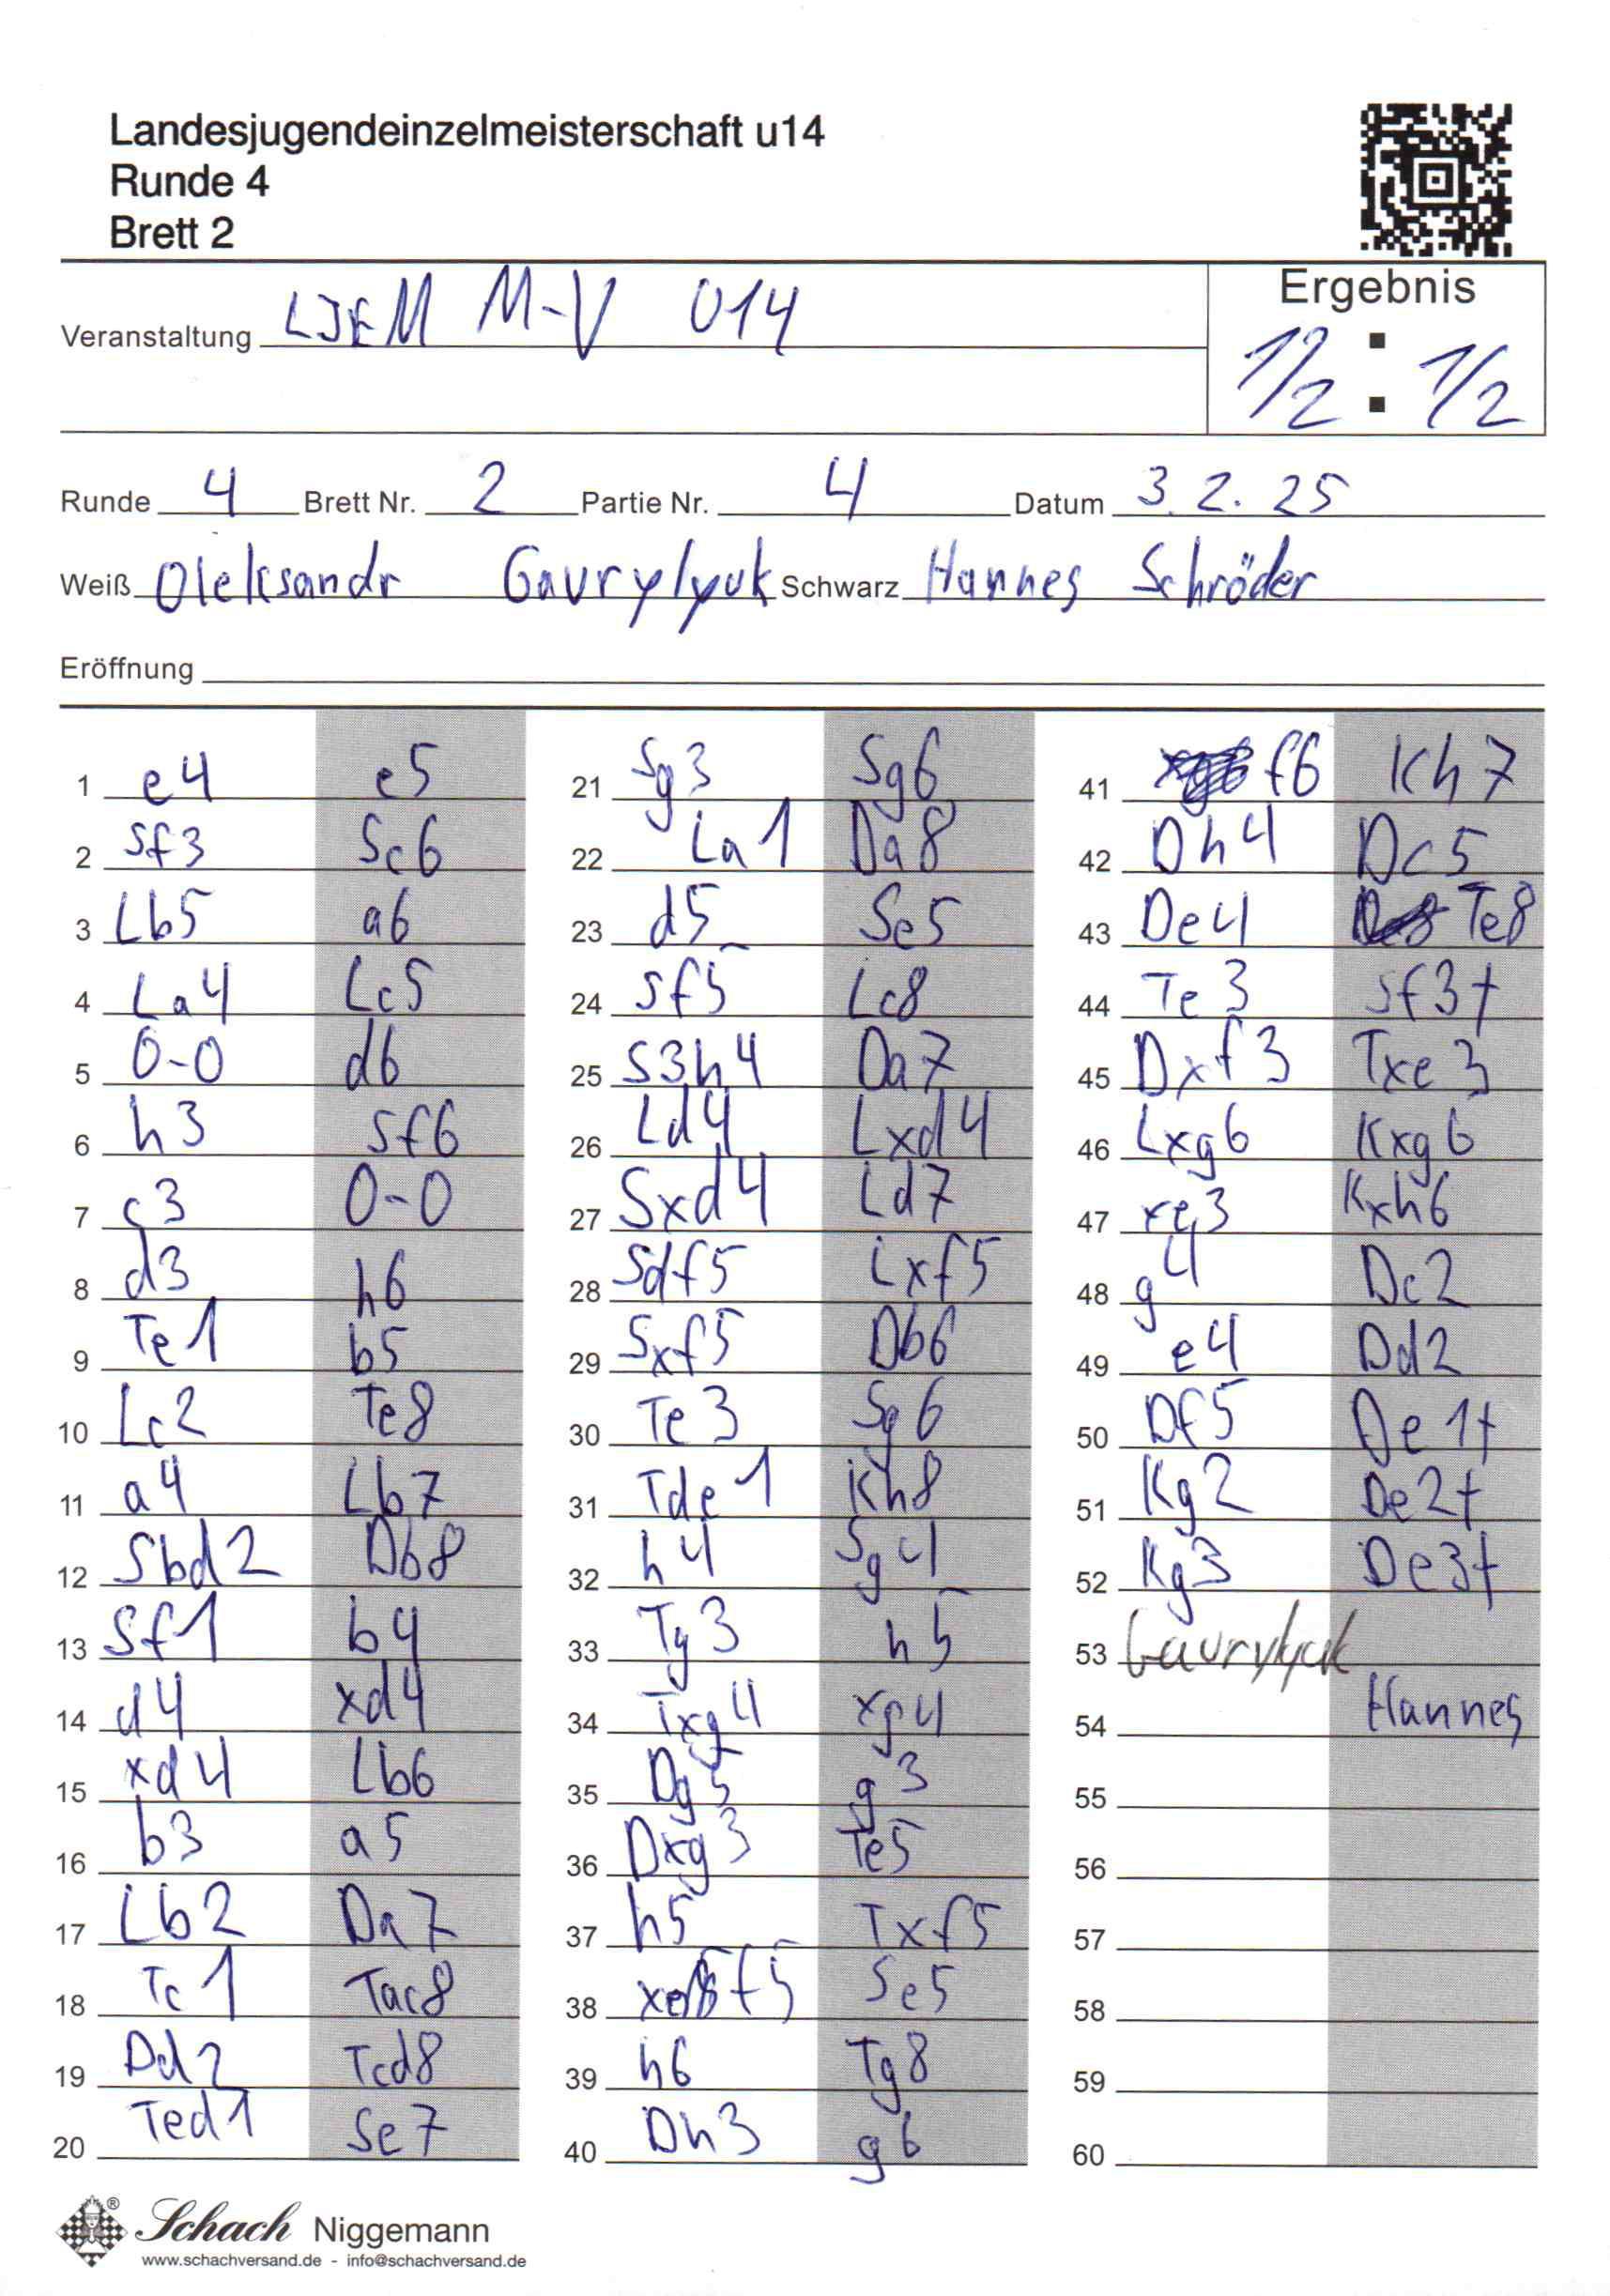 Landesjugendeinzelmeisterschaft u14
Runde 4
Brett 2
Veranstaltung LJEM M-V U14
Ergebnis
1/2 : 1/2
Runde 4 Brett Nr. 2 Partie Nr. 4 Datum 3.2.25
Weiß Oleksandr Gavrylyuk Schwarz Hannes Schröder
Eröffnung
1 e4 e5
2 Sf3 Sc6
3 Lb5 a6
4 La4 Lc5
5 0-0 d6
6 h3 Sf6
7 c3 0-0
8 d3 h6
9 Te1 b5
10 Lc2 Te8
11 a4 Lb7
12 Sbd2 Db8
13 Sf1 b4
14 d4 xd4
15 xd4 Lb6
16 b3 a5
17 Lb2 Da7
18 Tc1 Tac8
19 Dd2 Tcd8
20 Ted1 Se7
21 Sg3 Sg6
22 La1 Da8
23 d5 Se5
24 Sf5 Lc8
25 S3h4 Da7
26 Ld4 Lxd4
27 Sxd4 Ld7
28 Sdf5 Lxf5
29 Sxf5 Db6
30 Te3 Sg6
31 Tde1 Kh8
32 h4 Sg4
33 Tg3 h5
34 Txg4 xg4
35 Dg5 g3
36 Dxg3 Te5
37 h5 Txf5
38 xf5 Se5
39 h6 Tg8
40 Dh3 g6
41 f6 Kh7
42 Dh4 Dc5
43 De4 Te8
44 Te3 Sf3+
45 Dxf3 Txe3
46 Lxg6 Kxg6
47 xe3 Kxh6
48 g4 Dc2
49 e4 Dd2
50 Df5 De1+
51 Kg2 De2+
52 Kg3 De3+
53 Gavrylyuk
54 Hannes
55
56
57
58
59
60
Schach Niggemann
www.schachversand.de - info@schachversand.de